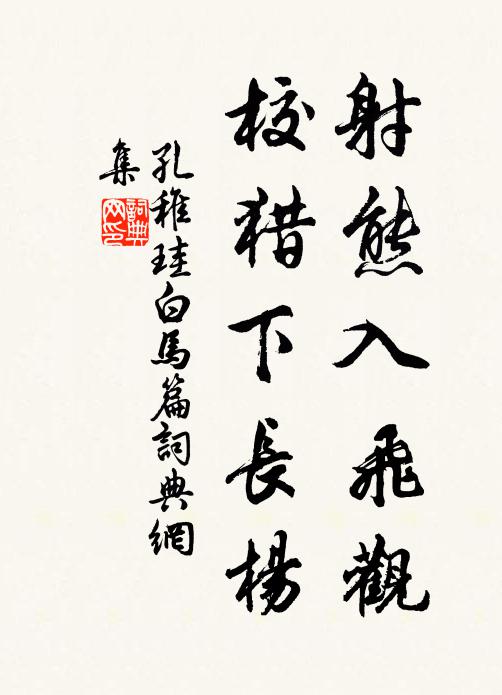 射熊入飛觀
校猎下長楊
孔稚珪白馬篇詞典網
集
詞典
网印